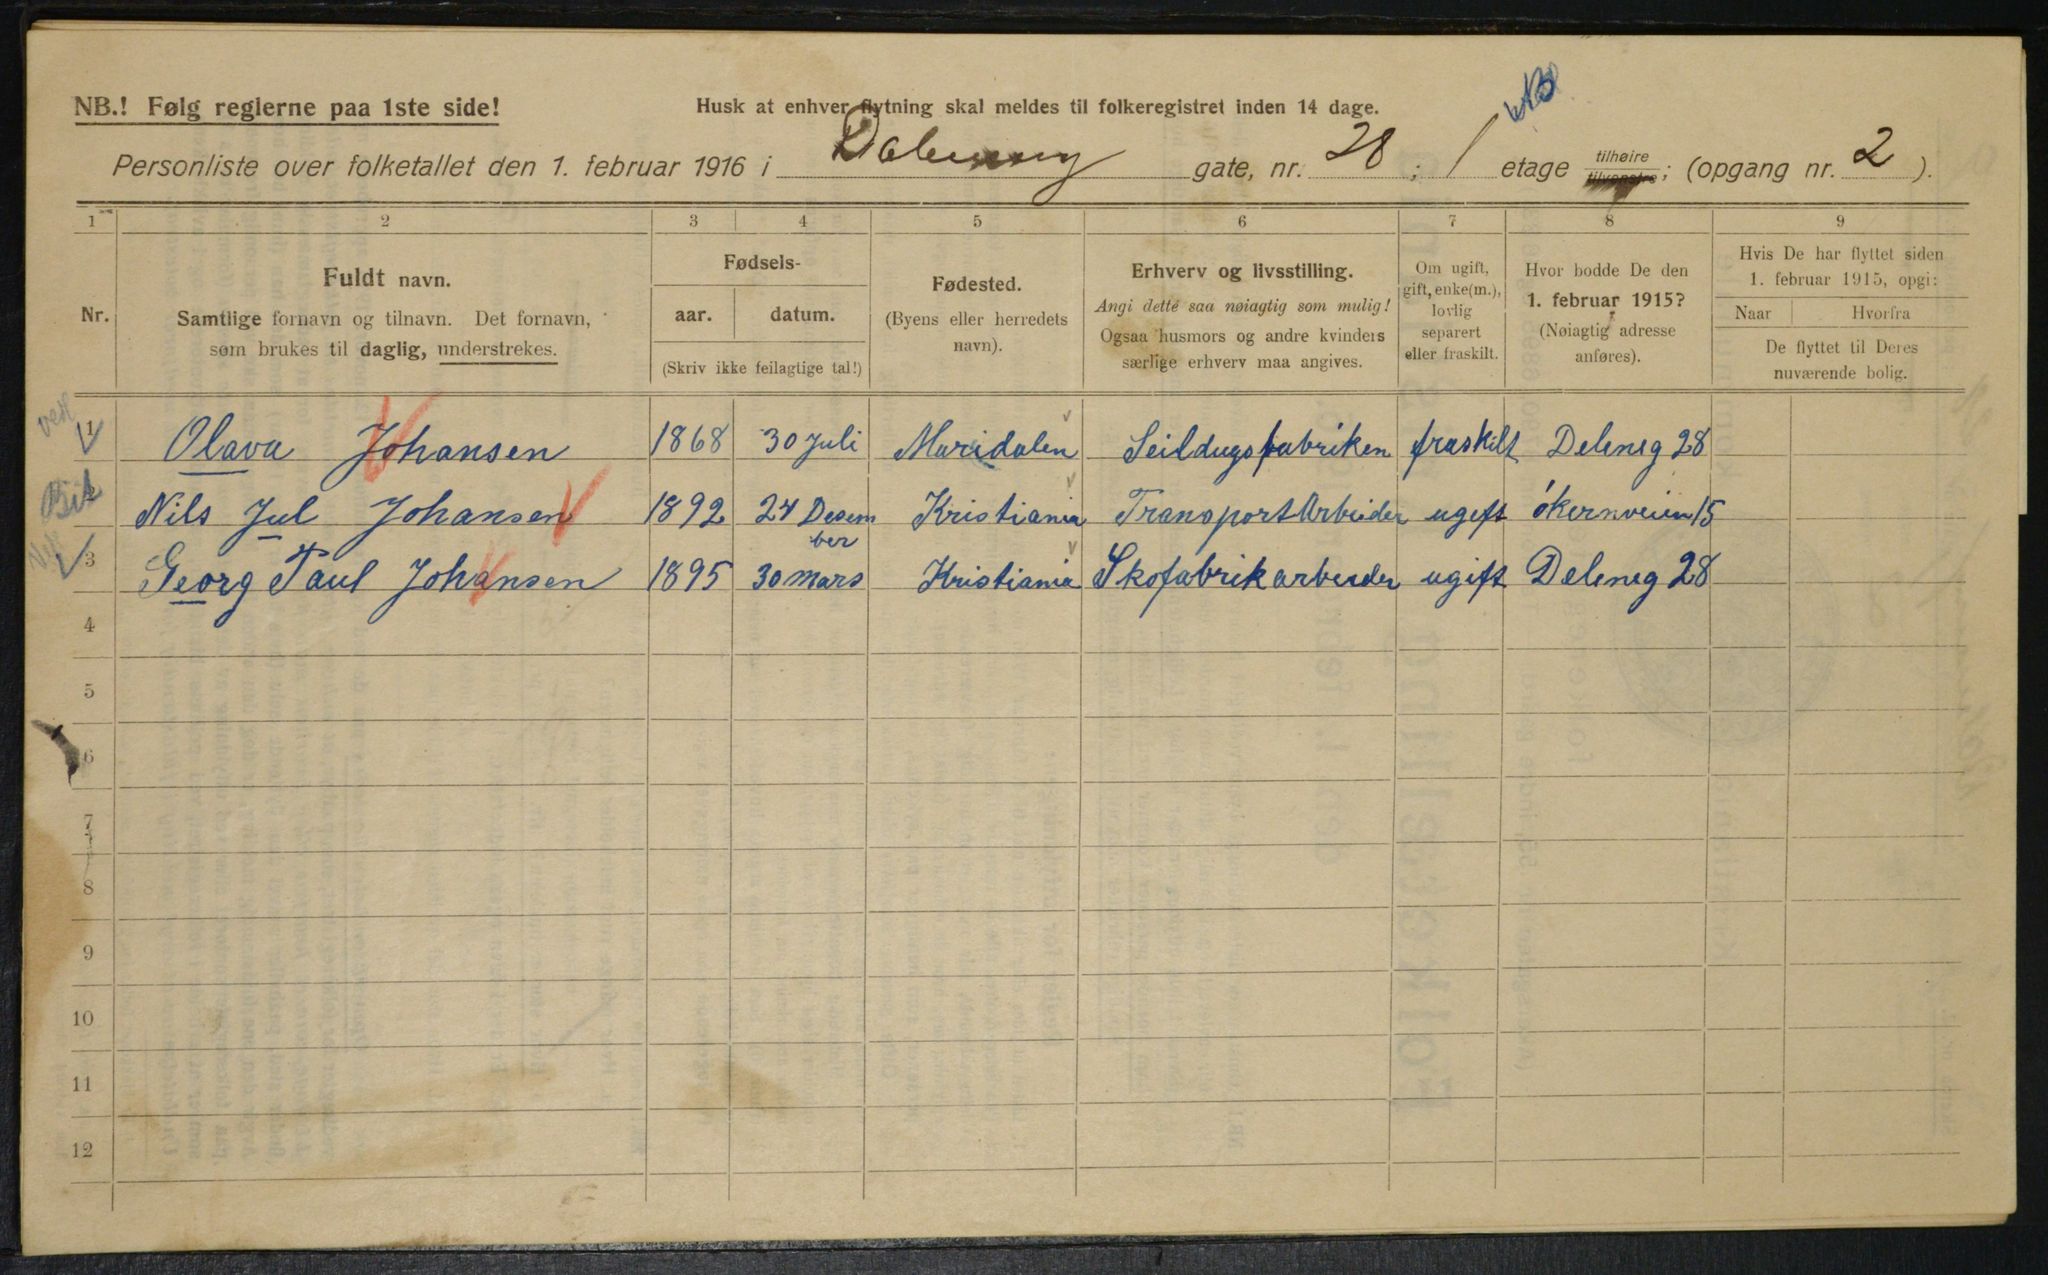 NB.! Følg reglerne paa 1ste side!
Husk at enhver flytning skal meldes til folkeregistret inden 14 dage.
Personliste over folketallet den 1. februar 1916 i Dælenengg gate, nr. 28 ; 1 etage tilhøire tilvenstre; (opgang nr. 2 ).
1 2 3 4 5 6 7 8 9
Nr.
Fuldt navn.
Samtlige fornavn og tilnavn. Det fornavn,
som brukes til daglig, understrekes.
Fødsels-
aar. datum.
(Skriv ikke feilagtige tal!)
Fødested.
(Byens eller herredets
navn).
Erhverv og livsstilling.
Angi dette saa nøiagtig som mulig!
Ogsaa husmors og andre kvinders
særlige erhverv maa angives.
Om ugift,
gift, enke(m.),
lovlig
separert
eller fraskilt.
Hvor bodde De den
1. februar 1915?
(Nøiagtig adresse
anføres).
Hvis De har flyttet siden
1. februar 1915, opgi:
Naar Hvorfra
De flyttet til Deres
nuværende bolig.
1 Olava Johansen 1868 30 Juli Maridalen Seildugsfabriken fraskilt Deleneg 28
2 Nils Jul Johansen 1892 24 Desember Kristiania TransportArbeider ugift økernveien 15
3 Georg Paul Johansen 1895 30 mars Kristiania Skofabrikarbeider ugift Deleneg 28
4
5
6
7
8
9
10
11
12